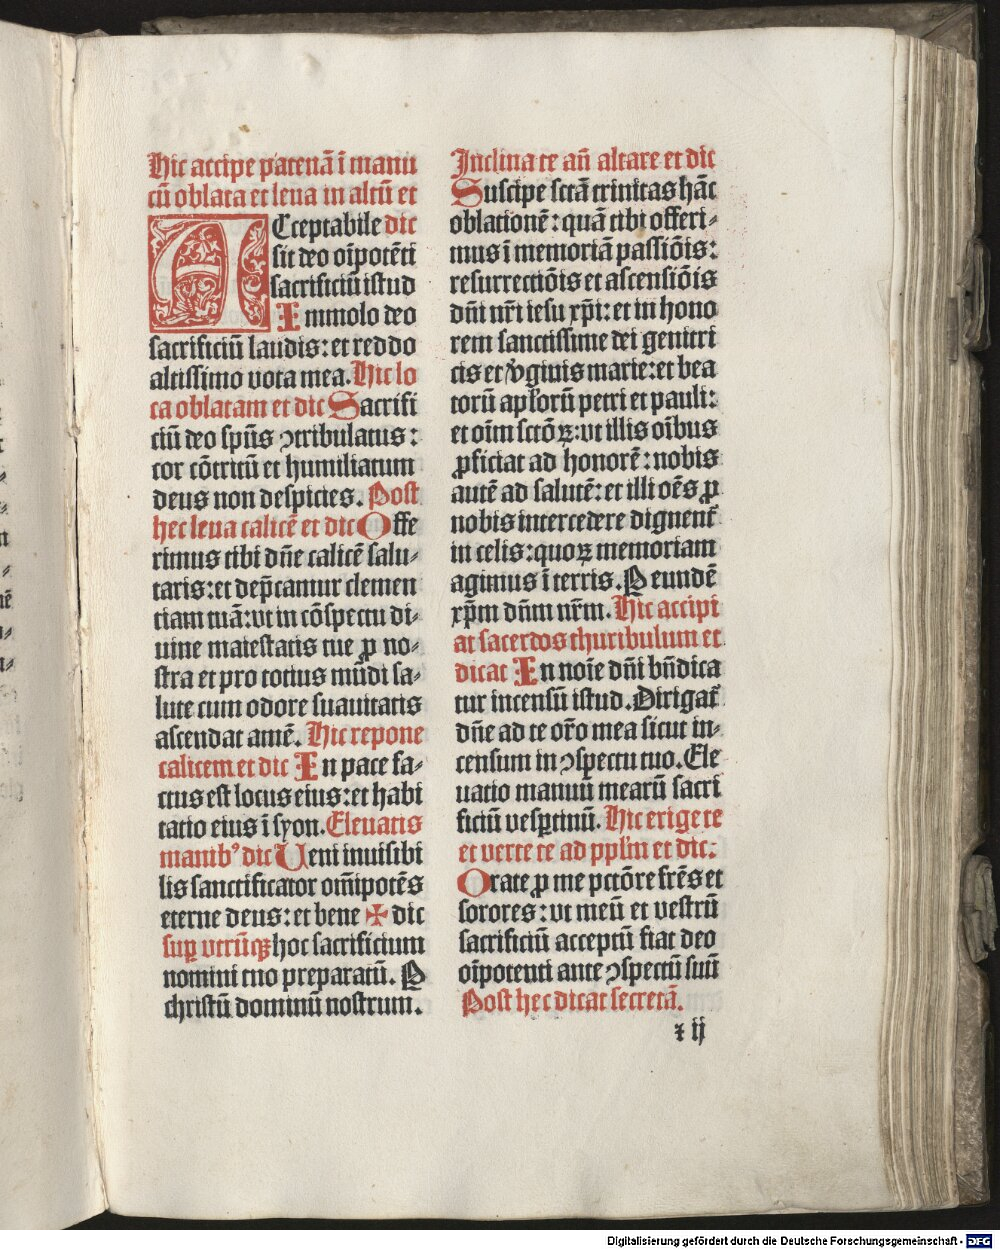 Hic accipe patenā ī manu
cū oblata et leua in altū et
ACceptabile dic
sit deo oīpotēti
sacrificiū istud
Immolo deo
sacrificiū laudis: et reddo
altissimo vota mea. Hic lo
ca oblatam et dic Sacrifi
ciū deo spūs ꝯtribulatus:
cor cōtritū et humiliatum
deus non despicies. Post
hec leua calicē et dic Offe
rimus tibi dn̄e calicē salu⸗
taris: et dep̄camur clemen
tiam tuā: vt in cōspectu di⸗
uine maiestatis tue ꝓ no⸗
stra et pro totius mūdi sa⸗
lute cum odore suauitatis
ascendat amē. Hic repone
calicem et dic In pace fa⸗
ctus est locus eius: et habi
tatio eius ī syon. Eleuatis
manibꝰ dic Ueni inuisibi
lis sanctificator om̄ipotēs
eterne deus: et bene ✠ dic
suꝑ vtrūqꝫ hoc sacrificium
nomini tuo preparatū. P
christū dominū nostrum.
Inclina te añ altare et dic
Suscipe sctā trinitas hāc
oblationē: quā tibi offeri⸗
mus ī memoriā passiōis:
resurrectiōis et ascensiōis
dn̄i nr̄i iesu xp̄i: et in hono
rem sanctissime dei genitri
cis et v̄ginis marie: et bea
torū apl'orū petri et pauli:
et oīm sctōꝝ: vt illis oībus
ꝓficiat ad honorē: nobis
autē ad salutē: et illi oēs ꝓ
nobis intercedere dignent᷑
in celis: quoꝝ memoriam
agimus ī terris. P eundē
xp̄m dn̄m nr̄m. Hic accipi
at sacerdos thuribulum et
dicat In noīe dn̄i bn̄dica
tur incensū istud. Dirigat᷑
dn̄e ad te or̄o mea sicut in⸗
censum in ꝯspectu tuo. Ele
uatio manuū mearū sacri
ficiū vesꝑtinū. Hic erige te
et verte te ad ppl'm et dic:
Orate ꝓ me pctōre frēs et
sorores: vt meū et vestrū
sacrificiū acceptū fiat deo
oīpotenti ante ꝯspectū suū
Post hec dicat secretā.
z ij
Digitalisierung gefördert durch die Deutsche Forschungsgemeinschaft - DFG